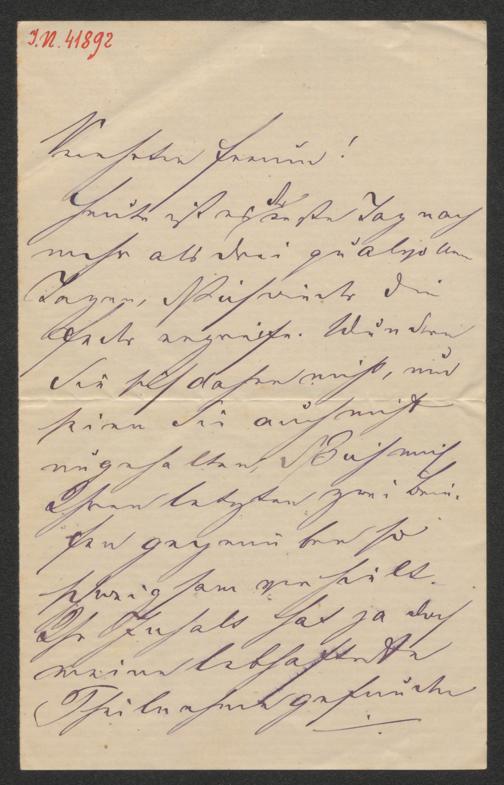 I.N. 41892
Verehrter Freund!
Heute ist es der erste Tag nach
mehr als drei qualvollen
Tagen, daß ich wieder die
Feder ergreife. Wundern
Sie sich daher nicht, und
seien Sie auch nicht
ungehalten, daß ich mich
Ihren letzten zwei Brie-
fen gegenüber so
schweigsam verhielt.
Ihr Inhalt hat ja doch
meine lebhafteste
Theilnahme gefunden